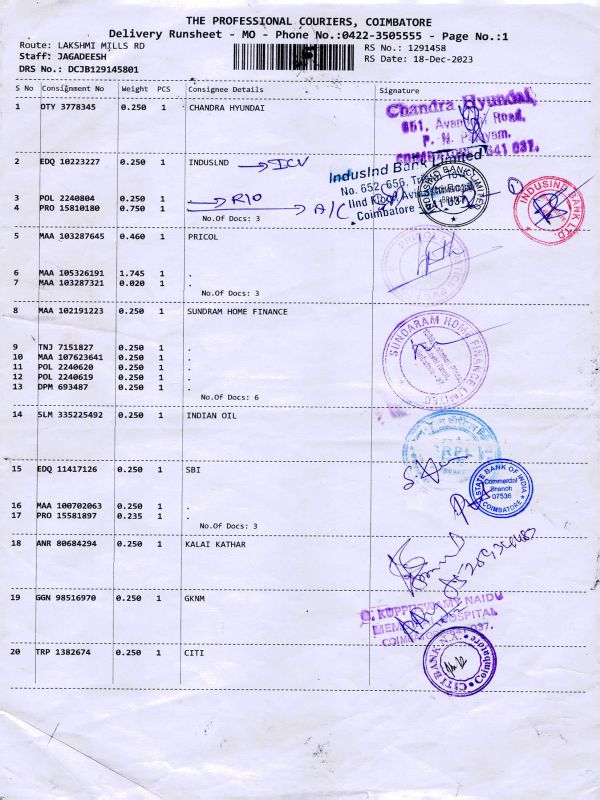 THE PROFESSIONAL COURIERS, COIMBATORE
Delivery Runsheet - MO - Phone No.:0422-3505555 - Page No.:1
Route: LAKSHMI MILLS RD RS No.: 1291458
Staff: JAGADEESH RS Date: 18-Dec-2023
DRS No.: DCJB129145801
S No Consignment No Weight PCS Consignee Details Signature
1 OTY 3778345 0.250 1 CHANDRA HYUNDAI
Chandra Hyundai,
P. N. Palayam,
COIMBATORE - 641 037.
2 EDQ 10223227 0.250 1 INDUSLND ICV
IndusInd Bank Limited
No. 652-656, Tristar Tower
IInd Floor, Avinashi Road
Coimbatore - 641 037
INDUSIND BANK LIMITED
BRANCH
INDUSIND BANK LTD.
3 POL 2240804 0.250 1 . R10
4 PRO 15810180 0.750 1 . A/C
No.Of Docs: 3
5 MAA 103287645 0.460 1 PRICOL
6 MAA 105326191 1.745 1 .
7 MAA 103287321 0.020 1 .
No.Of Docs: 3
8 MAA 102191223 0.250 1 SUNDRAM HOME FINANCE
SUNDARAM HOME FINANCE LIMITED
9 TNJ 7151827 0.250 1 .
10 MAA 107623641 0.250 1 .
11 POL 2240620 0.250 1 .
12 POL 2240619 0.250 1 .
13 DPM 693487 0.250 1 .
No.Of Docs: 6
14 SLM 335225492 0.250 1 INDIAN OIL
15 EDQ 11417126 0.250 1 SBI
STATE BANK OF INDIA
Commercial
Branch
07536
COIMBATORE
16 MAA 100702063 0.250 1 .
17 PRO 15581897 0.235 1 .
No.Of Docs: 3
18 ANR 80684294 0.250 1 KALAI KATHAR
19 GGN 98516970 0.250 1 GKNM
G. KUPPUSWAMY NAIDU
MEMORIAL HOSPITAL
COIMBATORE-641 037.
20 TRP 1382674 0.250 1 CITI
CITI BANK N.A. Coimbatore